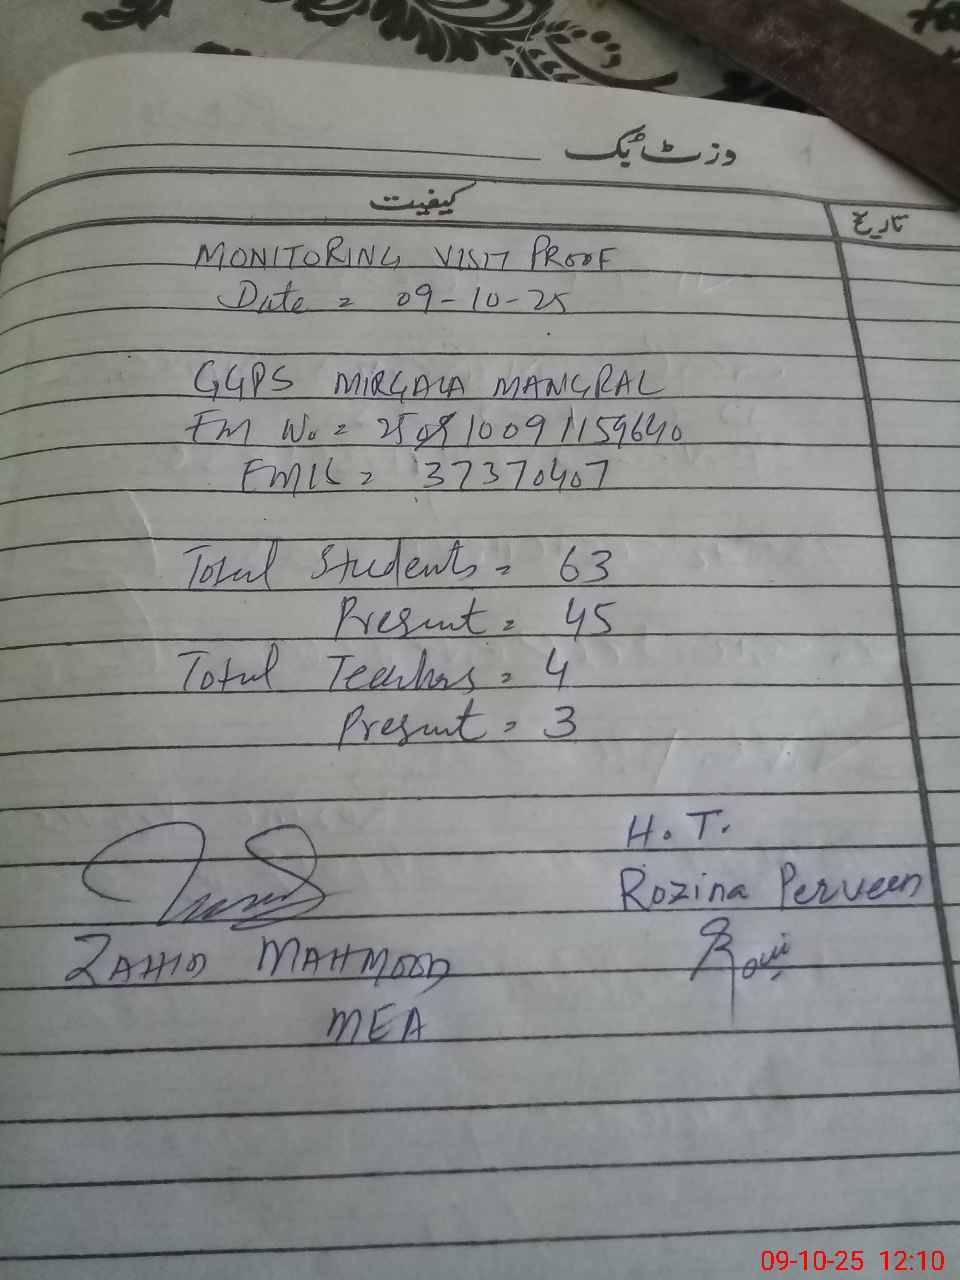 وزٹ بک
کیفیت
تاریخ
MONITORING VISIT PROOF
Date = 09-10-25
GGPS MIRGALA MANGRAL
EMIS = 37370407
Total Students = 63
Present = 45
Total Teachers = 4
Present = 3
H. T.
Rozina Perveen
ZAHID MAHMOOD
MEA
09-10-25 12:10